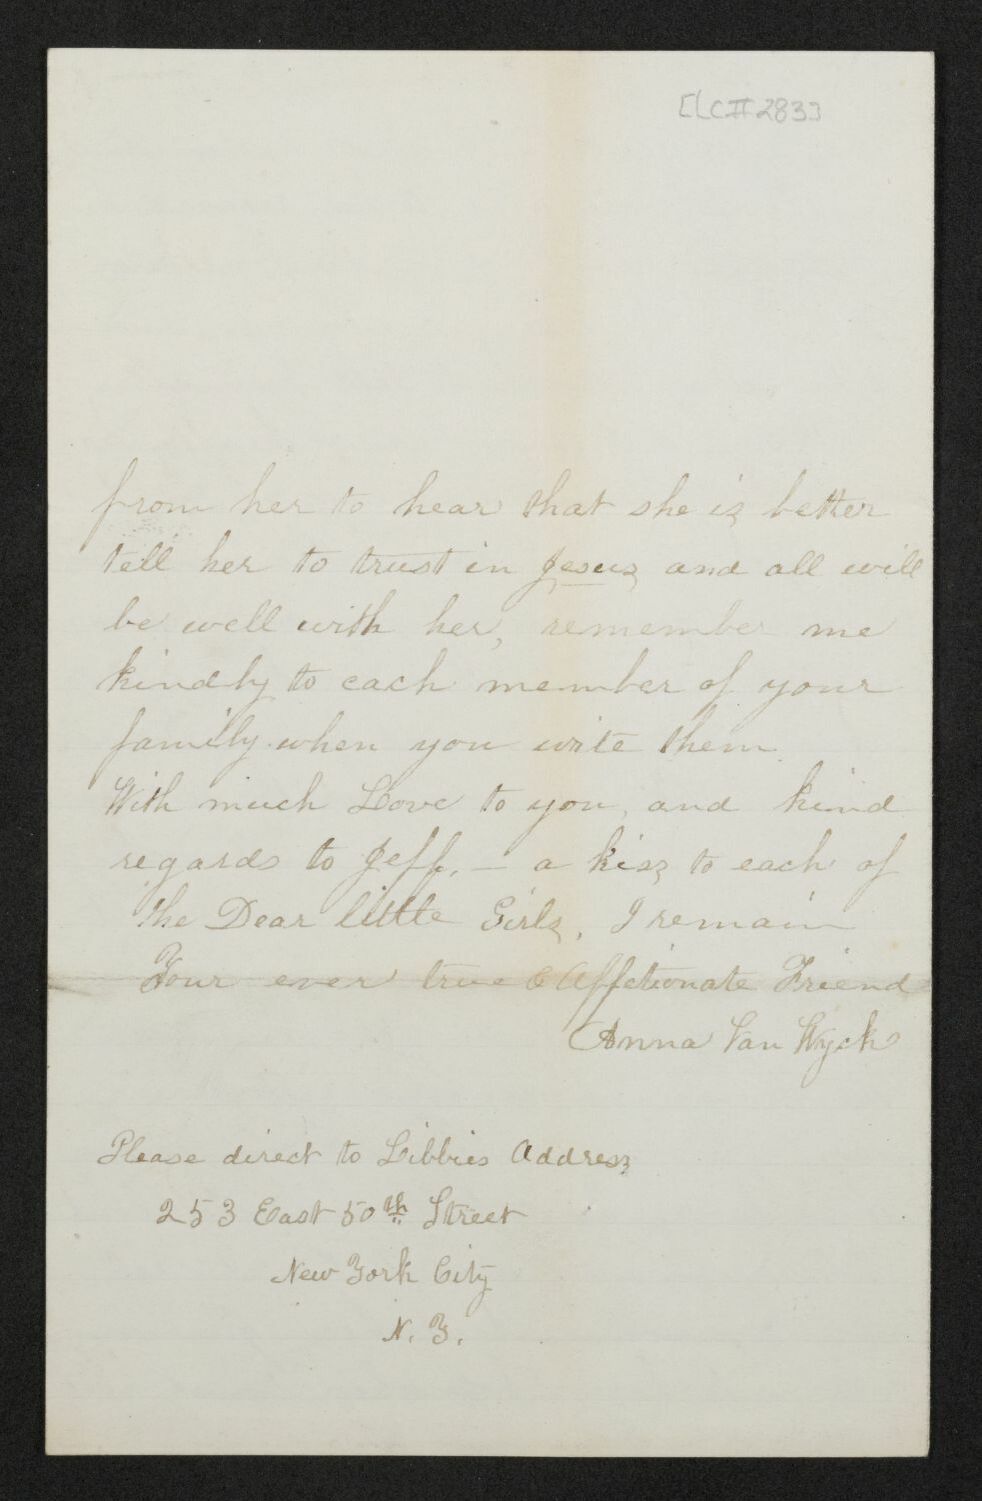 [LC#283]
from her to hear that she is better
tell her to trust in Jesus and all will
be well with her, remember me
kindly to each member of your
family when you write them.
With much Love to you, and kind
regards to Jeff. — a kiss to each of
the Dear little Girls. I remain
Your ever true & Affetionate Friend
Anna Van Wyck
Please direct to Libbies Address
253 East 50th Street
New York City
N. Y.